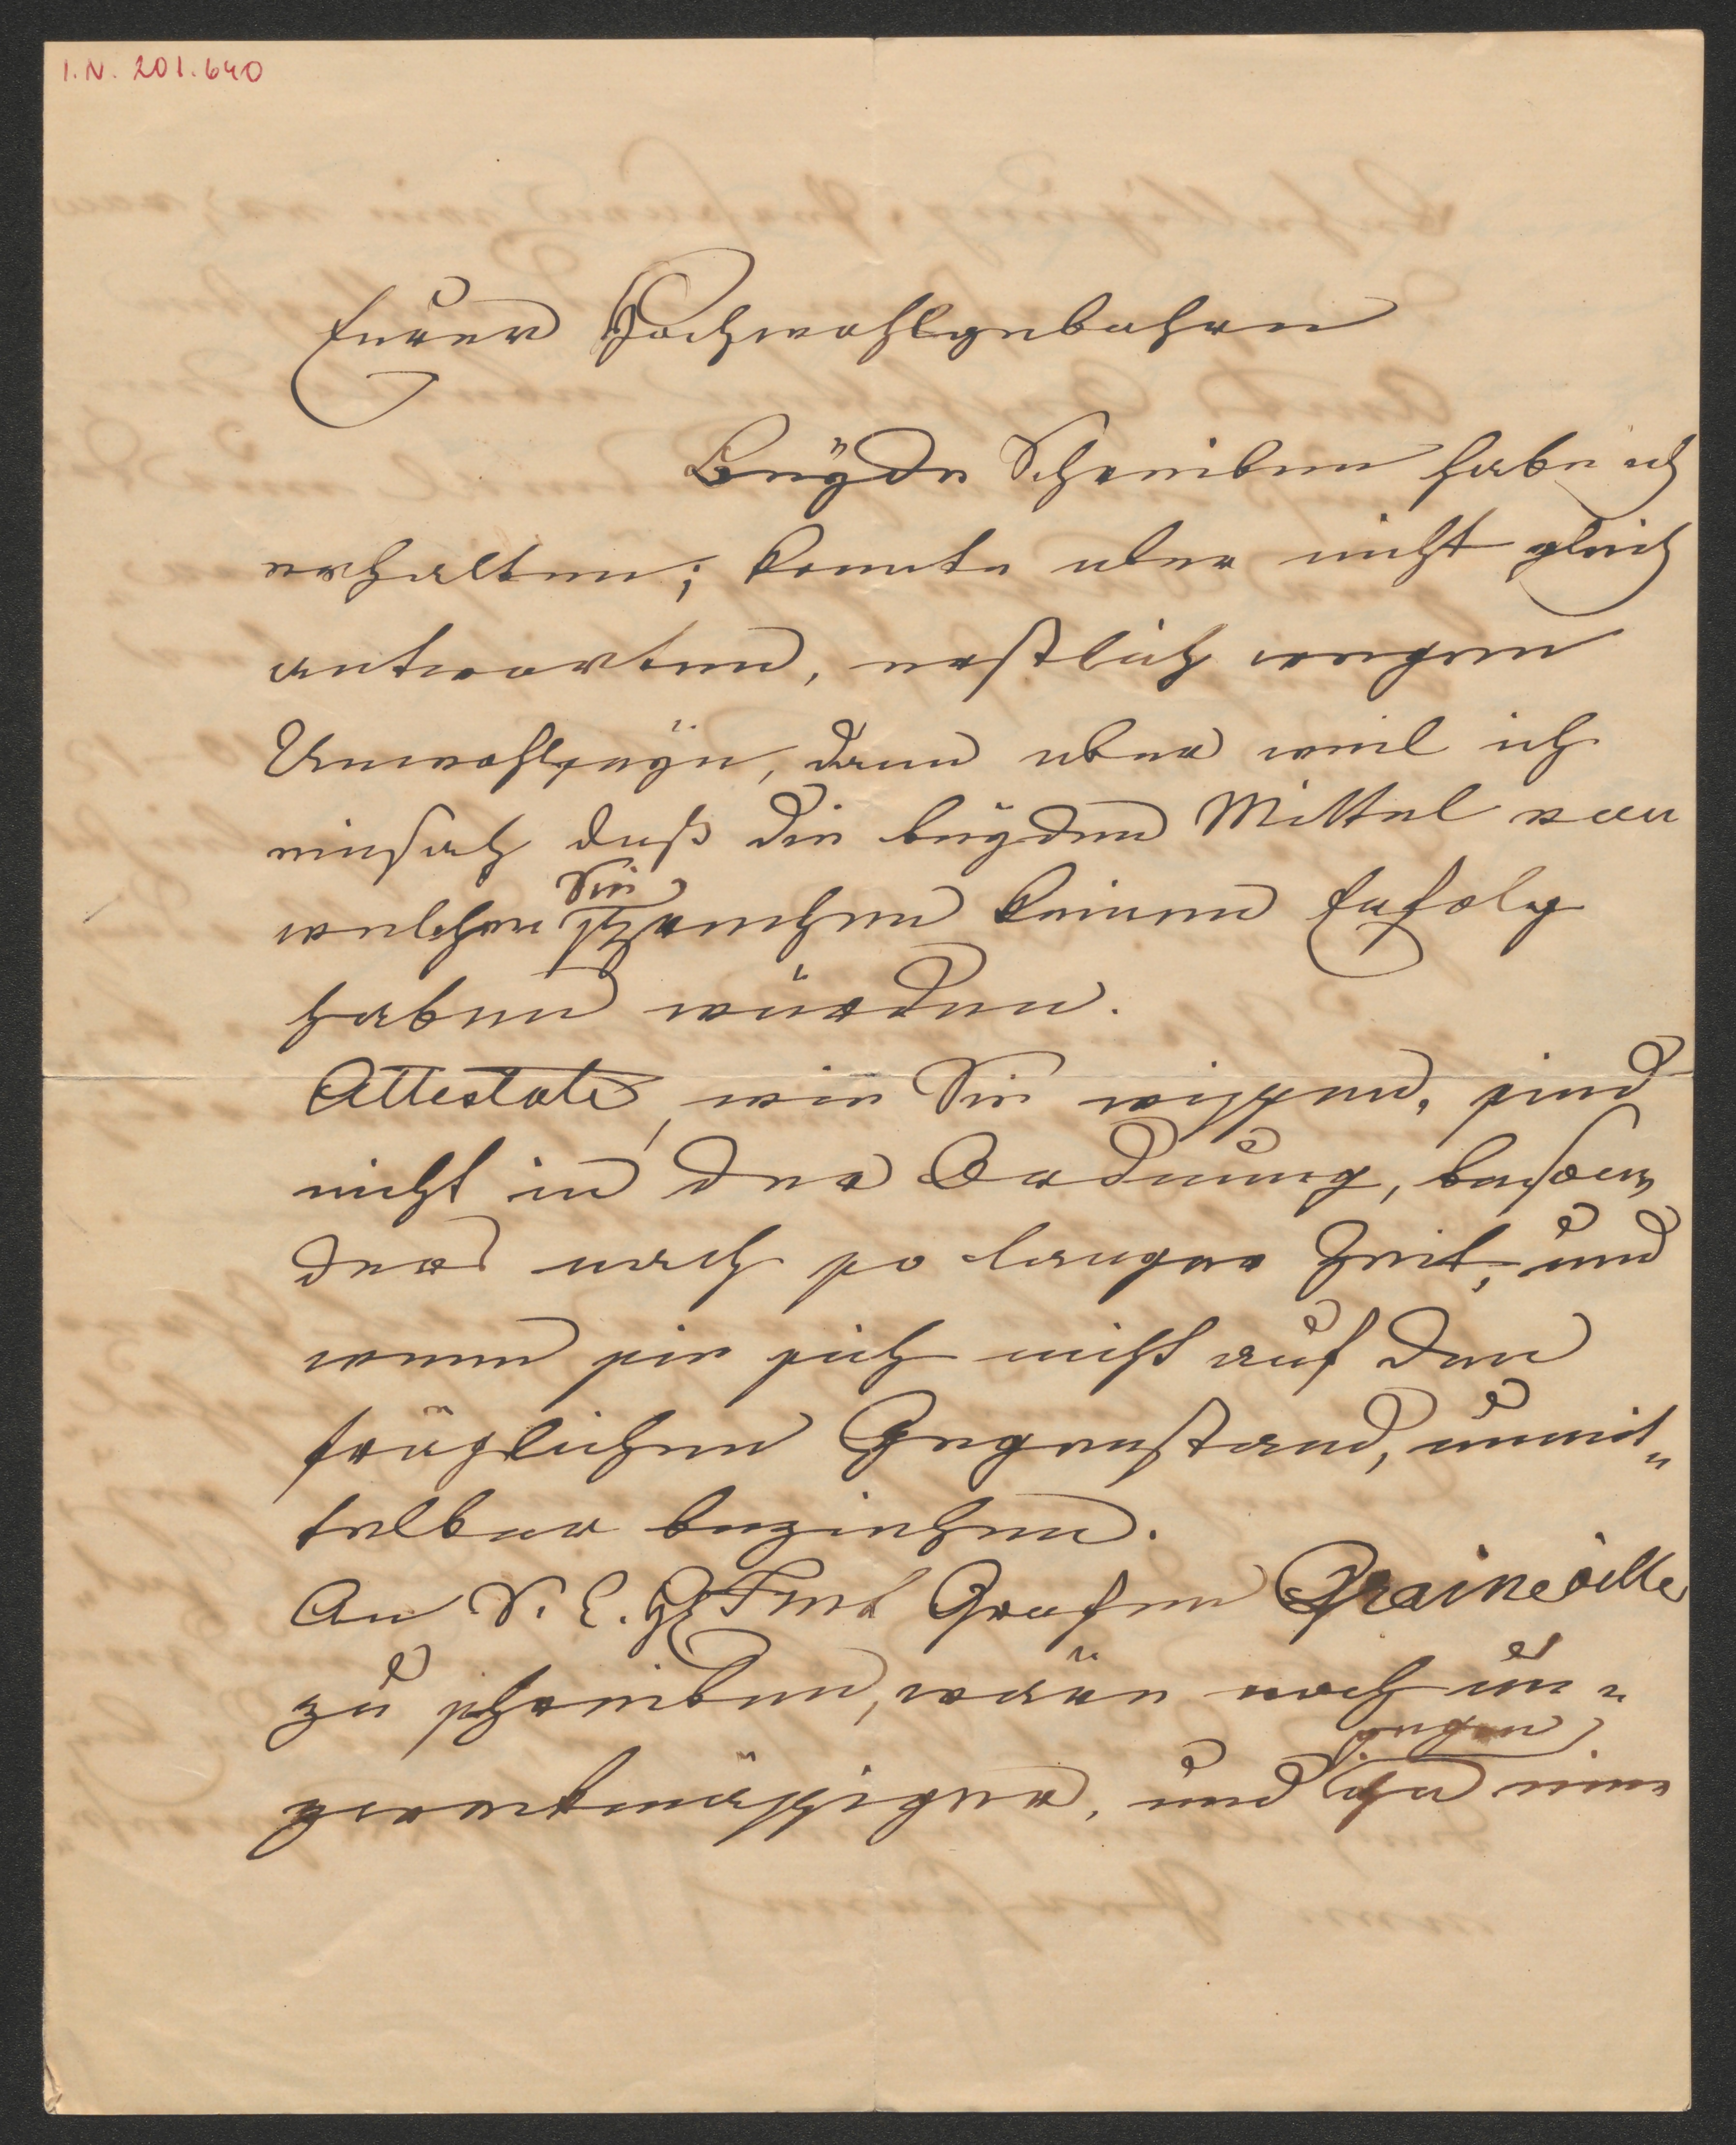 I.N. 201.640
Euer Hochwohlgeboren
Beÿde Schreiben habe ich
erhalten; konnte aber nicht gleich
antworten, erstlich wegen
Unwohlseÿn, dann aber weil ich
einsah daß die beÿden Mittel von
Sie
welchen sprechen keinen Erfolg
haben würden.
Attestate, wie Sie wissen, sind
nicht in der Ordnung, beson,
ders nach so langer Zeit, und
wenn sie sich nicht auf den
fräglichen Gegenstand, unmit„
telbar beziehen.
An S. E. H Fml Grafen Craineville
zu schreiben, wäre noch un„
gegen
zwekmässiger, und eine